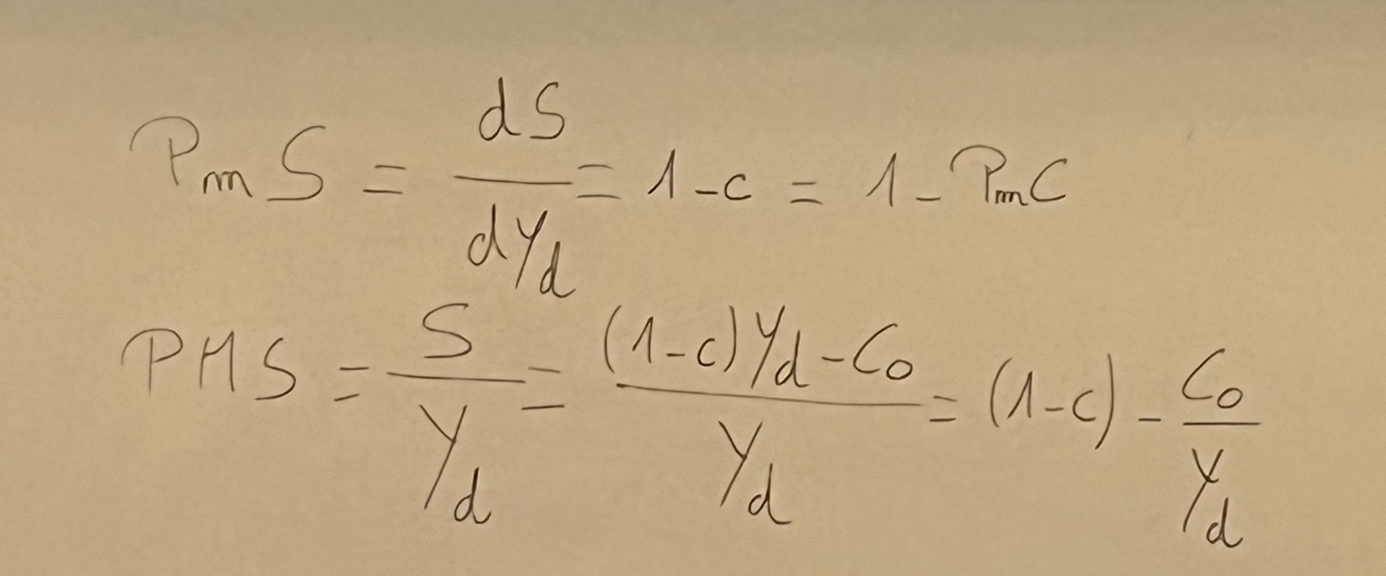 PmS = dS/dYd = 1-c = 1-PmC
PMS = S/Yd = ((1-c)Yd-C₀)/Yd = (1-c) - C₀/Yd